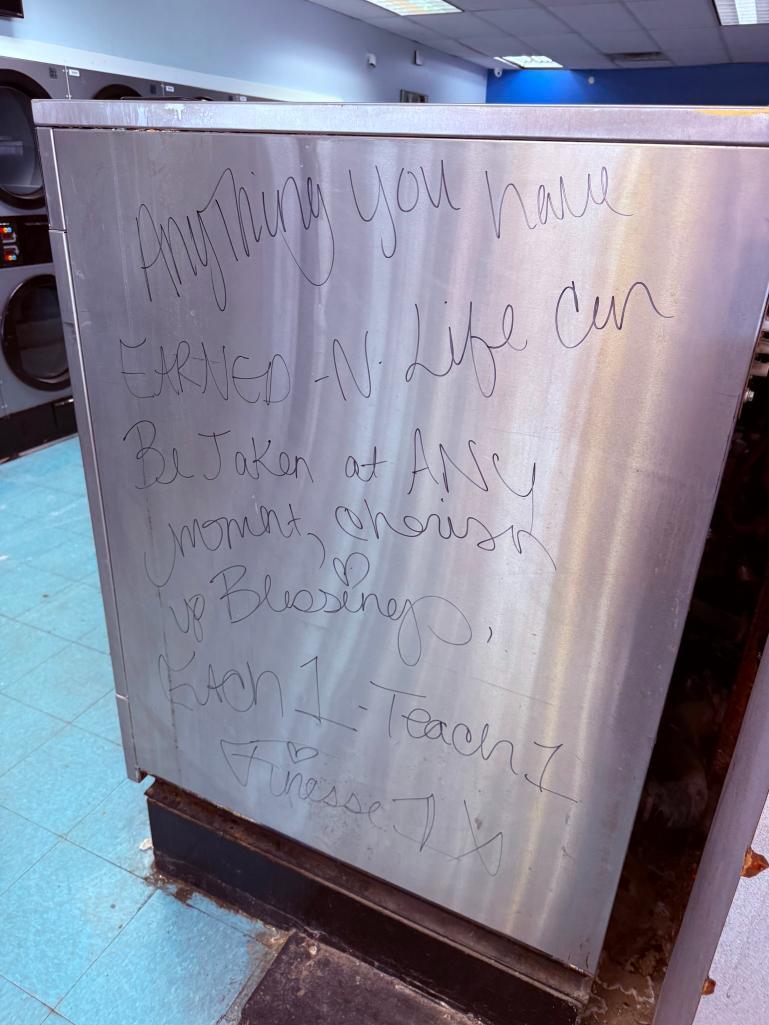 Anything you have
EARNED -N- Life Can
Be Taken at ANY
moment, cherish
up Blessings,
EACh 1 - Teach 1
Finesse